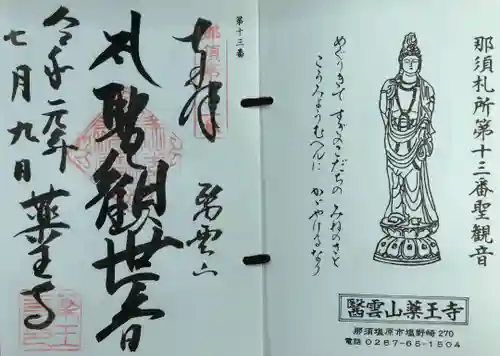 那須札所第十三番聖観音
めぐりきて すぎのこだちの みねのさと
こうみょうむへんに かがやけるなり
醫雲山薬王寺
那須塩原市塩野崎270
電話 0287-65-1504
第十三番
奉拝
醫雲山
札聖観世音
令和元年
薬王寺
七月九日